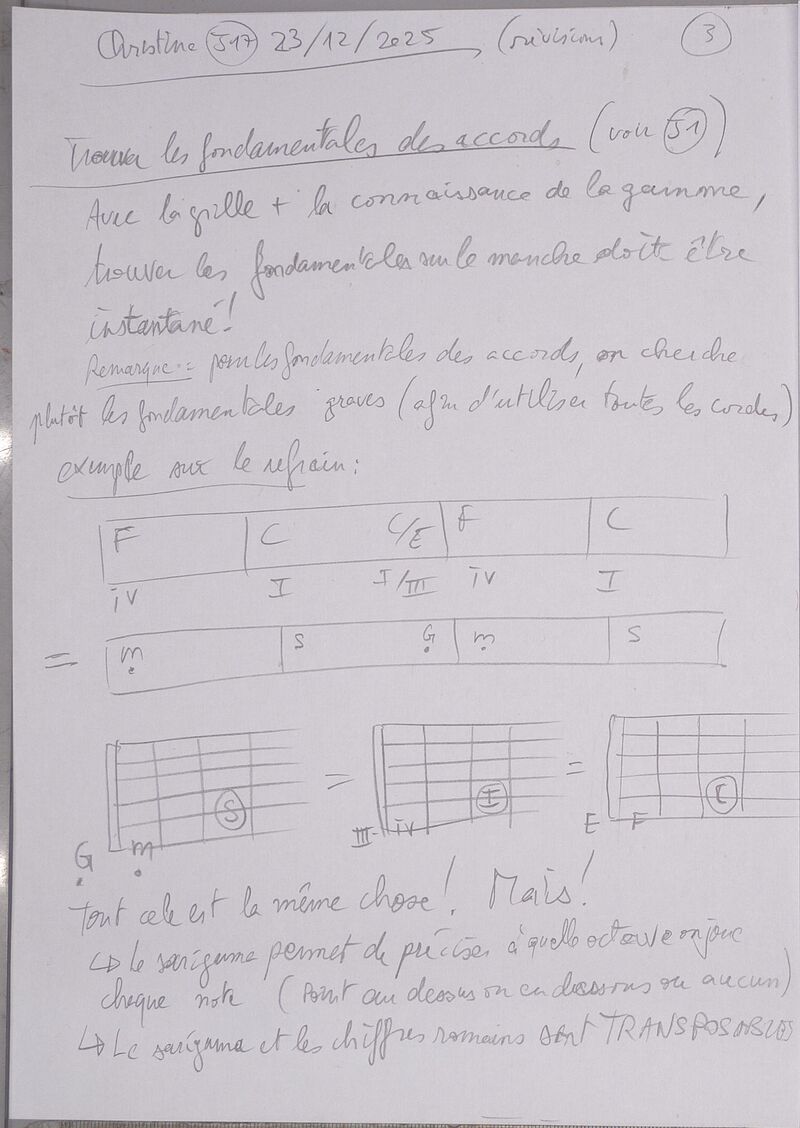 Christine J17 23/12/2025 (révisions) 3
Trouver les fondamentales des accords (voir J1)
Avec la grille + la connaissance de la gamme,
trouver les fondamentales sur le manche doit être
instantané!
Remarque: pour les fondamentales des accords, on cherche
plutôt les fondamentales graves (afin d'utiliser toutes les cordes)
exemple sur le refrain:
F C C/E F C
IV I I/III IV I
= m S G m S
S = I = C
G m III IV E F
Tout cela est la même chose! Mais!
↳ le sarigama permet de préciser à quelle octave on joue
chaque note (point au dessus ou en dessous ou aucun)
↳ Le sarigama et les chiffres romains sont TRANSPOSABLES